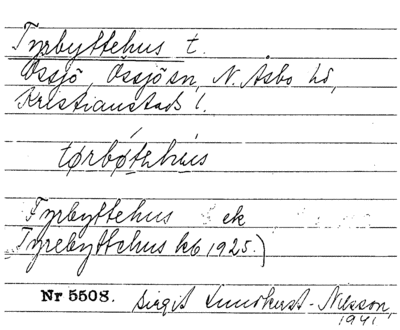 Tyrbyttehus t.
Össjö, Össjö sn, N. Åsbo hd,
Kristianstads l.
tørbøtehús
Tyrbyttehus ek
Tyrebyttehus kb 1925.)
Nr 5508. Birgit Lundkvist-Nilsson,
1941